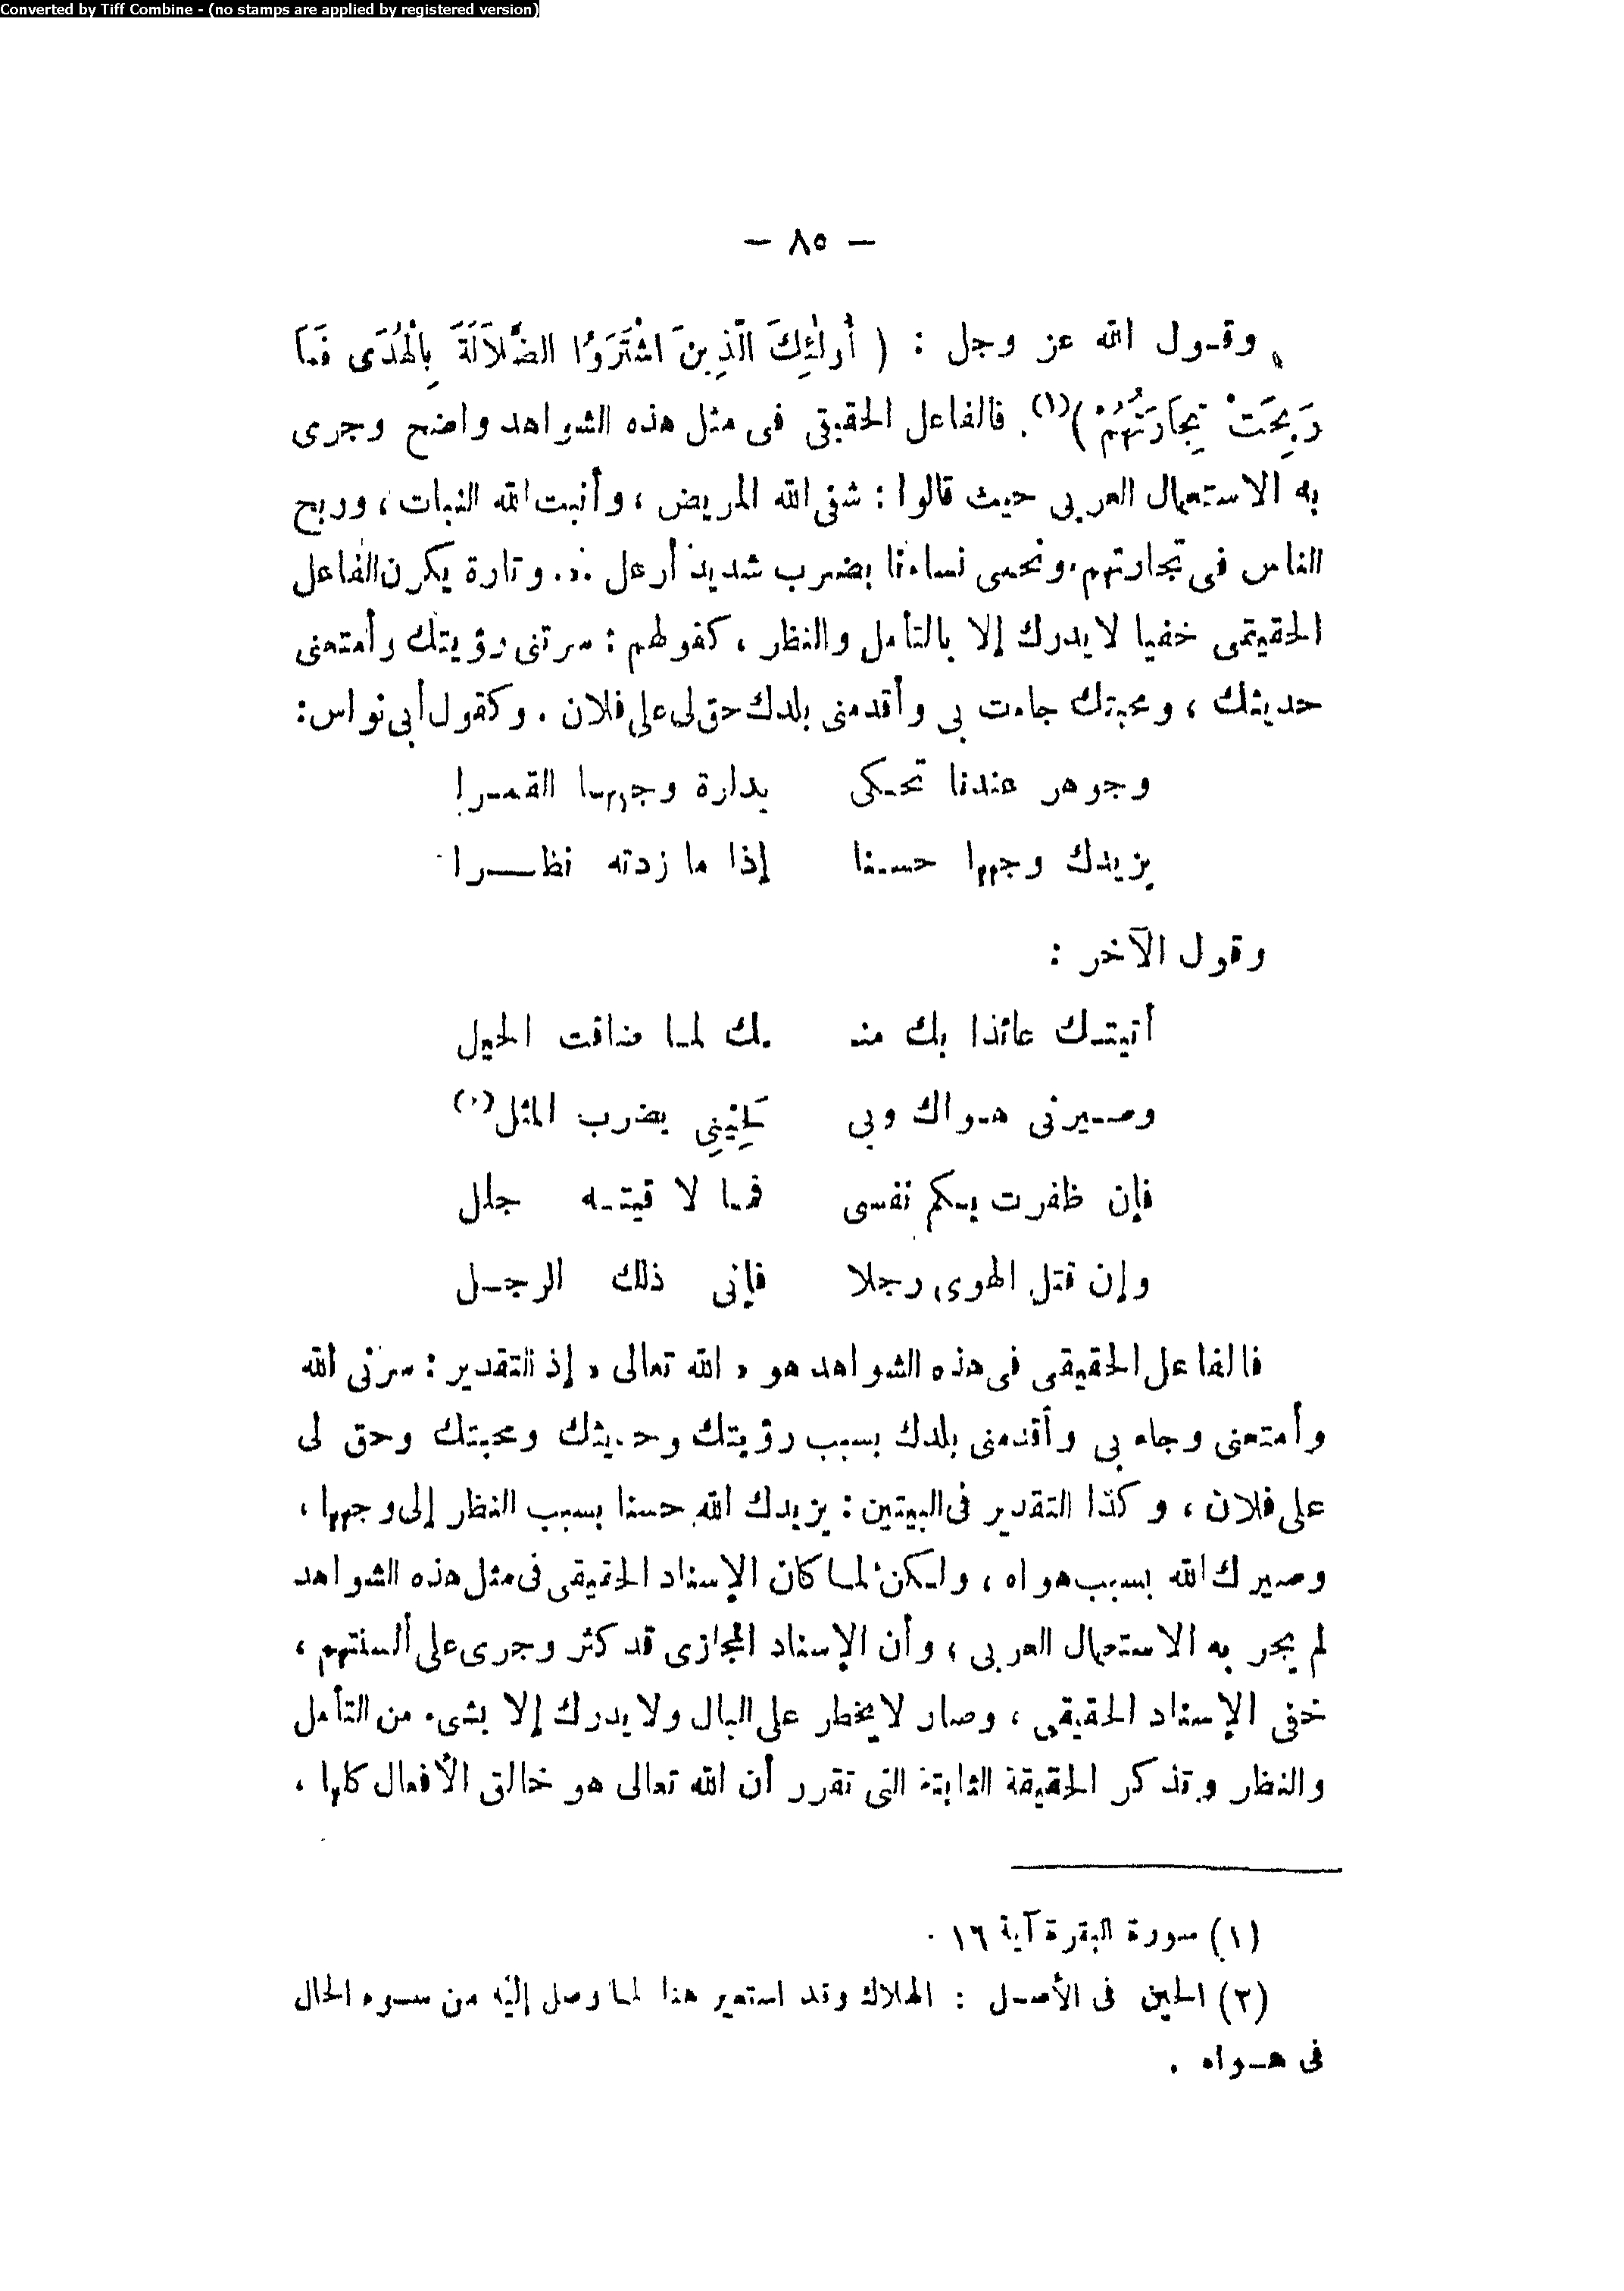 Converted by Tiff Combine - (no stamps are applied by registered version)
— ٨٥ —
وقول الله عز وجل : ( أُولَٰئِكَ الَّذِينَ اشْتَرَوُا الضَّلَالَةَ بِالْهُدَى فَمَا
رَبِحَتْ تِجَارَتُهُمْ )(١). فالفاعل الحقيقى فى مثل هذه الشواهد واضح وجرى
به الاستعمال العربى حيث قالوا : شفى الله المريض ، وأنبت الله النبات ، وربح
الناس فى تجارتهم، ونحمى نساءنا بضرب شديد أرعل .. وتارة يكون الفاعل
الحقيقى خفيا لا يدرك إلا بالتأمل والنظر ، كقولهم : سرتنى رؤيتك وأمتعنى
حديثك ، ومحبتك جاءت بى وأقدمنى بلدك حق لى على فلان . وكقول أبى نواس :
وجوهر عندنا تحكى بدارة وجهها القمرا
يزيدك وجهها حسنا إذا ما زدته نظرا
وقول الآخر :
أتيتك عائذا بك منـ ـك لما ضاقت الحيل
وصيرنى هواك وبى لِحَيْنِي يضرب المثل(٢)
فإن ظفرت بكم نفسى فما لاقيته جلل
وإن قتل الهوى رجلا فإنى ذلك الرجل
فالفاعل الحقيقى فى هذه الشواهد هو « الله تعالى » إذ التقدير : سرنى الله
وأمتعنى وجاء بى وأقدمنى بلدك بسبب رؤيتك وحديثك ومحبتك وحق لى
على فلان ، وكذا التقدير فى البيتين : يزيدك الله حسنا بسبب النظر إلى وجهها ،
وصيرك الله بسبب هواه ، ولكن لما كان الإسناد الحقيقى فى مثل هذه الشواهد
لم يجر به الاستعمال العربى ، وأن الإسناد المجازى قد كثر وجرى على ألسنتهم ،
خفى الإسناد الحقيقى ، وصار لا يخطر على البال ولا يدرك إلا بشىء من التأمل
والنظر وتذكر الحقيقة الثابتة التى تقرر أن الله تعالى هو خالق الأفعال كلها ،
(١) سورة البقرة آية ١٦ .
(٢) الحين فى الأصل : الهلاك وقد استعير هنا لما وصل إليه من سوء الحال
فى هواه .